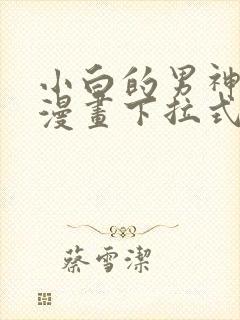 小白的男神
漫畫下拉式
蔡雪潔